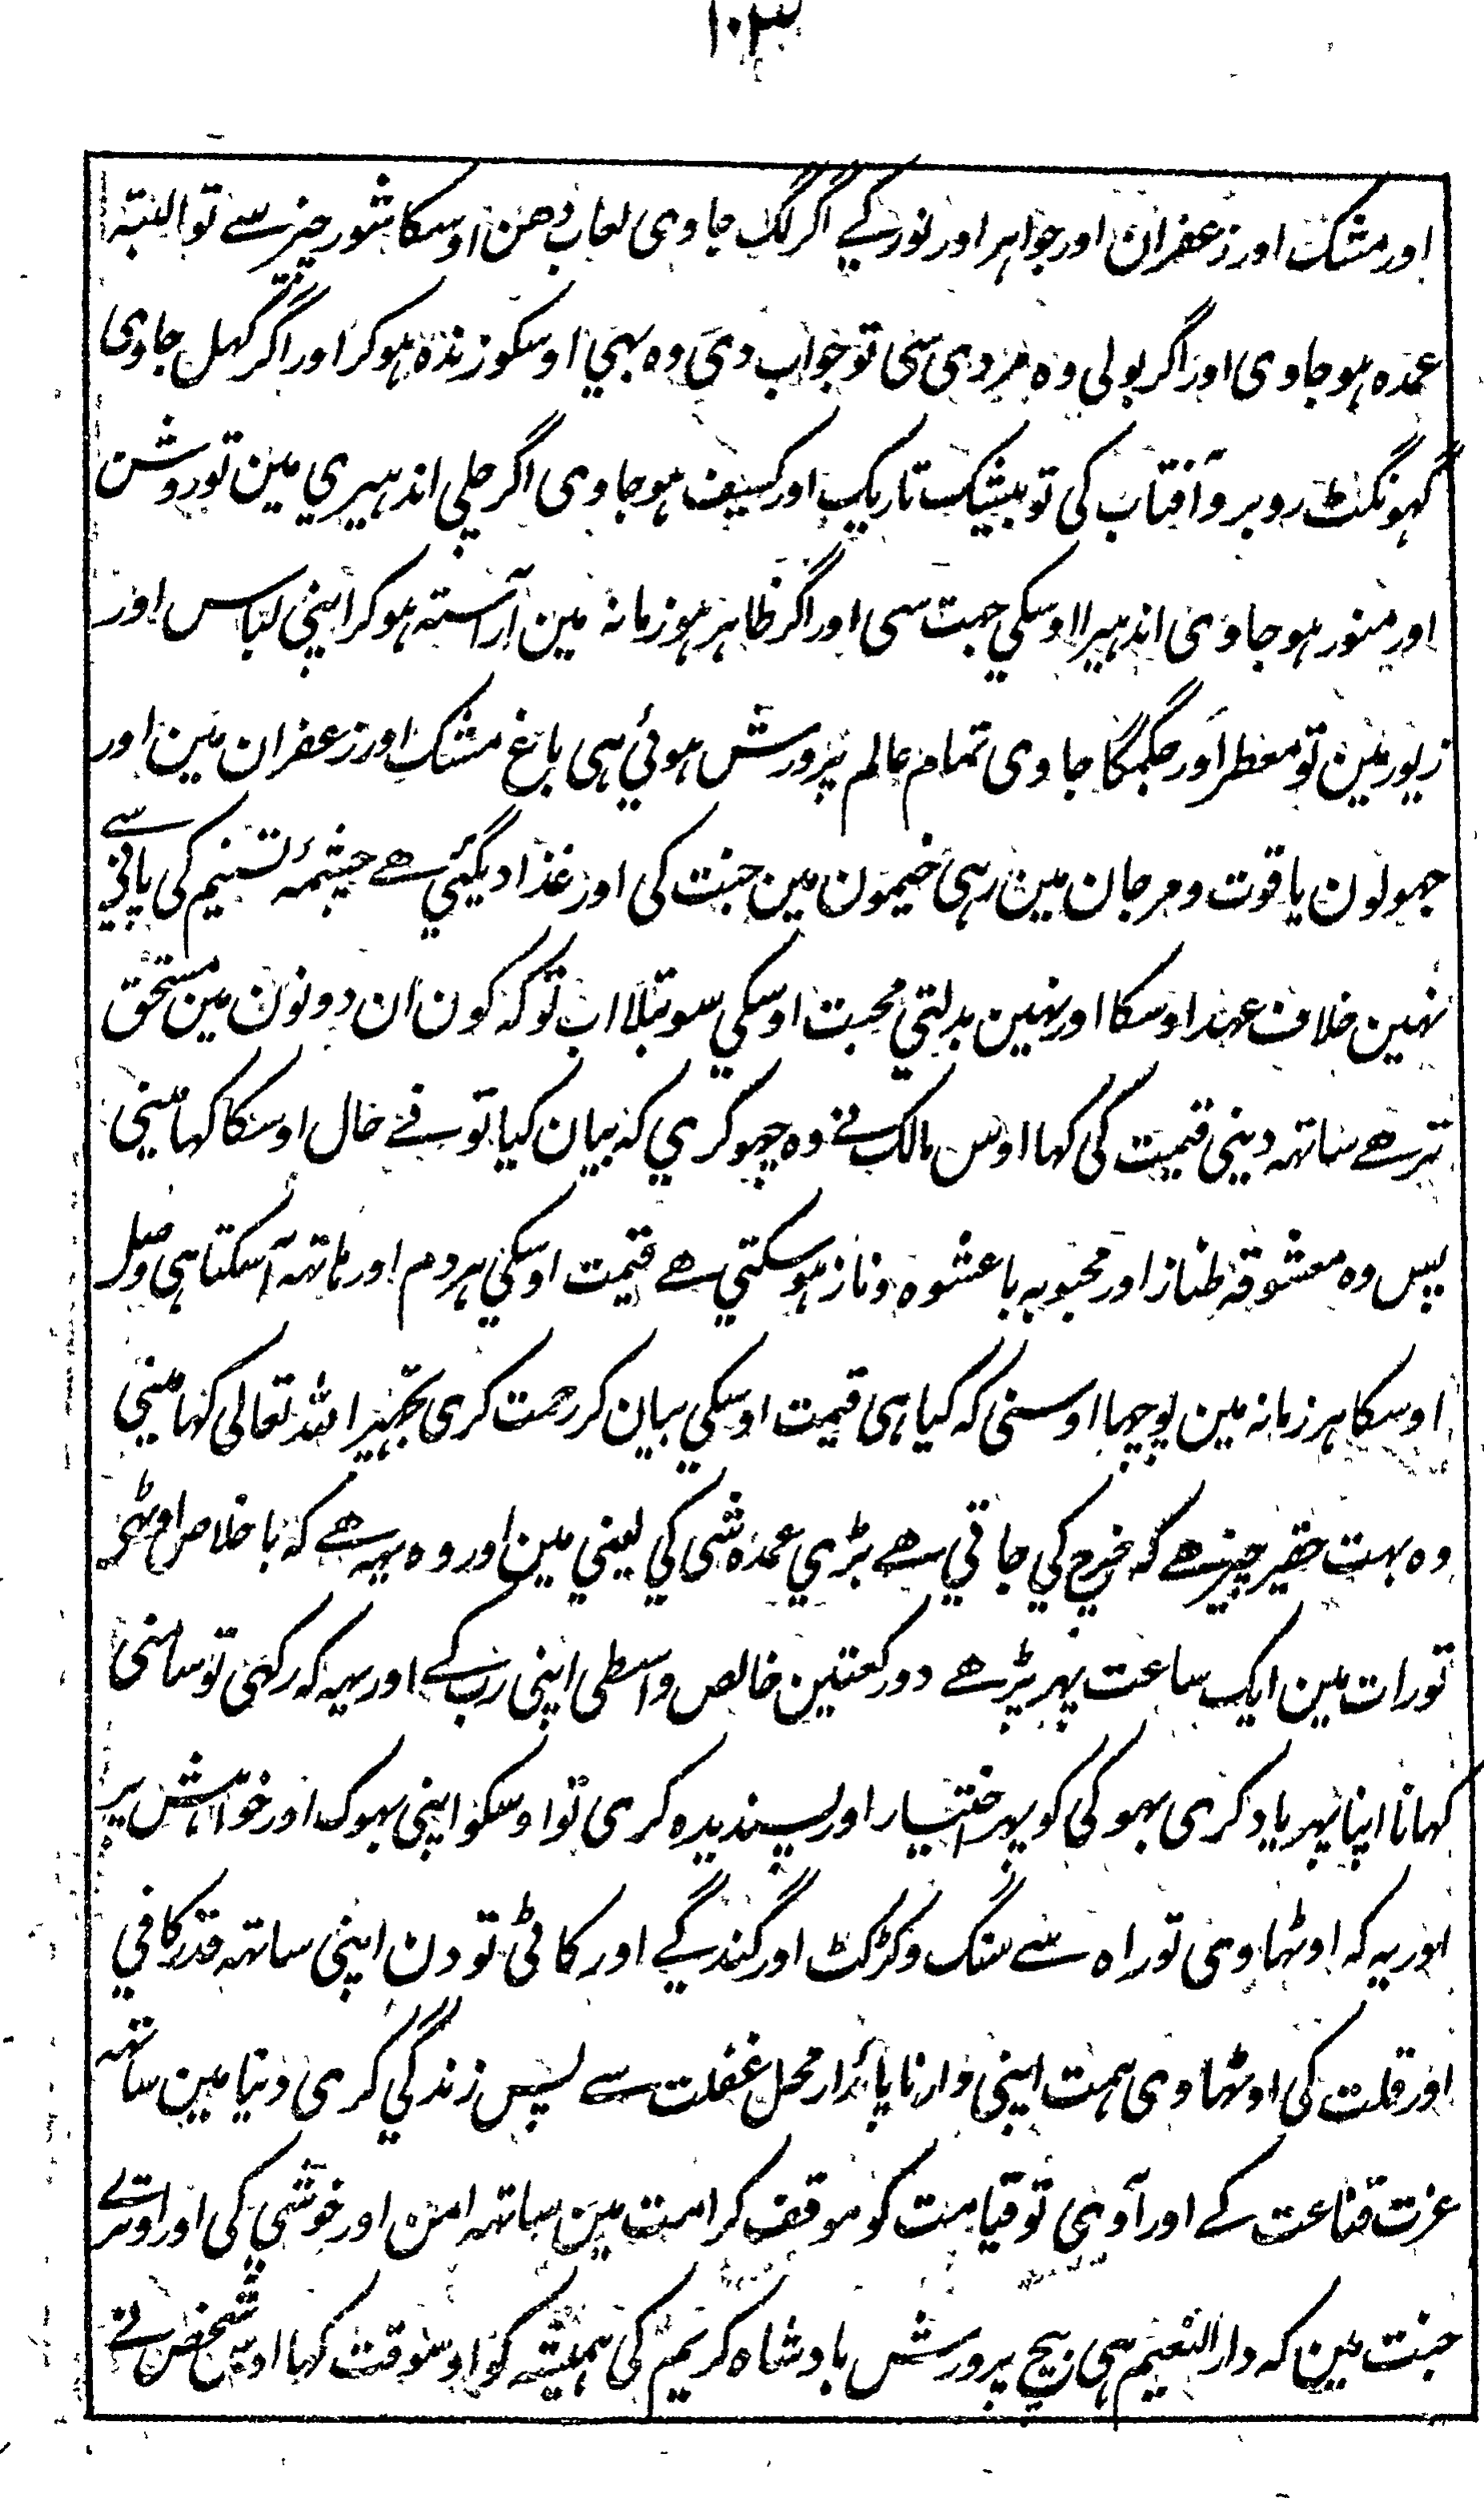 ۱۰۳
اور مشک اور زعفران اور جواہر اور نور کے اگر لگ جاوی لعاب دھن اوسکا شور چیز سے تو البتہ
عمدہ ہو جاوی اور اگر بولی وہ مردی سی تو جواب دی وہ بہی اوسکو زندہ ہوکر اور اگر کہل جاوی
گہونگٹ روبرو آفتاب کی تو بیشک تاریک اور کسیف ہو جاوی اگر چلی اندہیری مین تو روشن
اور منور ہو جاوی اندہیرا اوسکی جہت سی اور اگر ظاہر ہو زمانہ مین آراستہ ہوکر اپنی لباس اور
زیور مین تو معطر اور جگمگا جاوی تمام عالم پرورش ہوئی ہی باغ مشک اور زعفران مین اور
جہولون یاقوت و مرجان مین رہی خیمون مین جنت کی اور غذا دیگئی ہے چشمۂ تسنیم کی پانی سے
نہین خلاف عہد اوسکا اور نہین بدلتی محبت اوسکی سو بتلا اب تو کہ کون ان دونون مین مستحق
تر ہے ساتہہ دینی قیمت کی کہا اوس مالک نے وہ چہوکری کہ بیان کیا تو نے حال اوسکا کہا مینی
پس وہ معشوقہ طناز اور محبوبہ با عشوہ و ناز ہو سکتی ہے قیمت اوسکی ہر دم اور ہاتہہ آ سکتا ہی وصل
اوسکا ہر زمانہ مین پوچہا اوسنی کہ کیا ہی قیمت اوسکی بیان کر رحمت کری تجہپر اللہ تعالی کہا مینی
وہ بہت حقیر چیز ہے کہ خرچ کی جاتی ہے بڑی عمدہ شی کی لینی مین اور وہ یہہ ہے کہ باخلاص اوٹہی
تو رات مین ایک ساعت پہر پڑھے دو رکعتین خالص واسطی اپنی رب کے اور یہہ کہ رکہی تو سامنی
کہانا اپنا پہر یاد کری بہوکی کو پہر اختیار اور پسندیدہ کری تو اوسکو اپنی بہوک اور خواہش پر
اور یہ کہ اوٹہاوی تو راہ سے سنگ و کڑکٹ اور گندگے اور کاٹی تو دن اپنی ساتہہ قدر کافی
اور قلت کی اوٹہاوی ہمت اپنی دار ناپائدار محل غفلت سے پس زندگی کری دنیا مین ساتہہ
عزت قناعت کے اور آوی تو قیامت کو موقف کرامت مین ساتہہ امن اور خوشی کی اور اوترے
جنت مین کہ دار النعیم ہی بیچ پرورش بادشاہ کریم کی ہمیشہ کو اوسوقت کہا اوس شخص نے